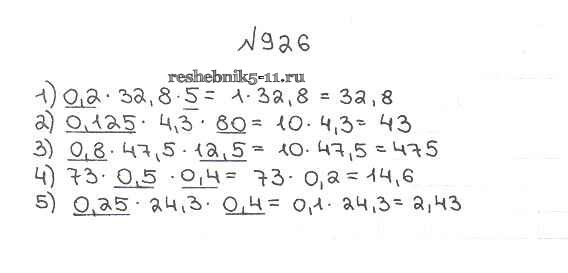 №926
reshebnik5-11.ru
1) 0,2 · 32,8 · 5 = 1 · 32,8 = 32,8
2) 0,125 · 4,3 · 80 = 10 · 4,3 = 43
3) 0,8 · 47,5 · 12,5 = 10 · 47,5 = 475
4) 73 · 0,5 · 0,4 = 73 · 0,2 = 14,6
5) 0,25 · 24,3 · 0,4 = 0,1 · 24,3 = 2,43